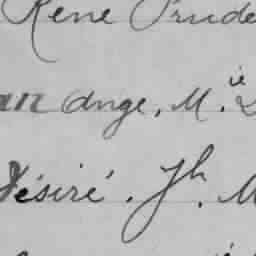 René Prude
an Ange, M.ie
Désiré. Jh. M